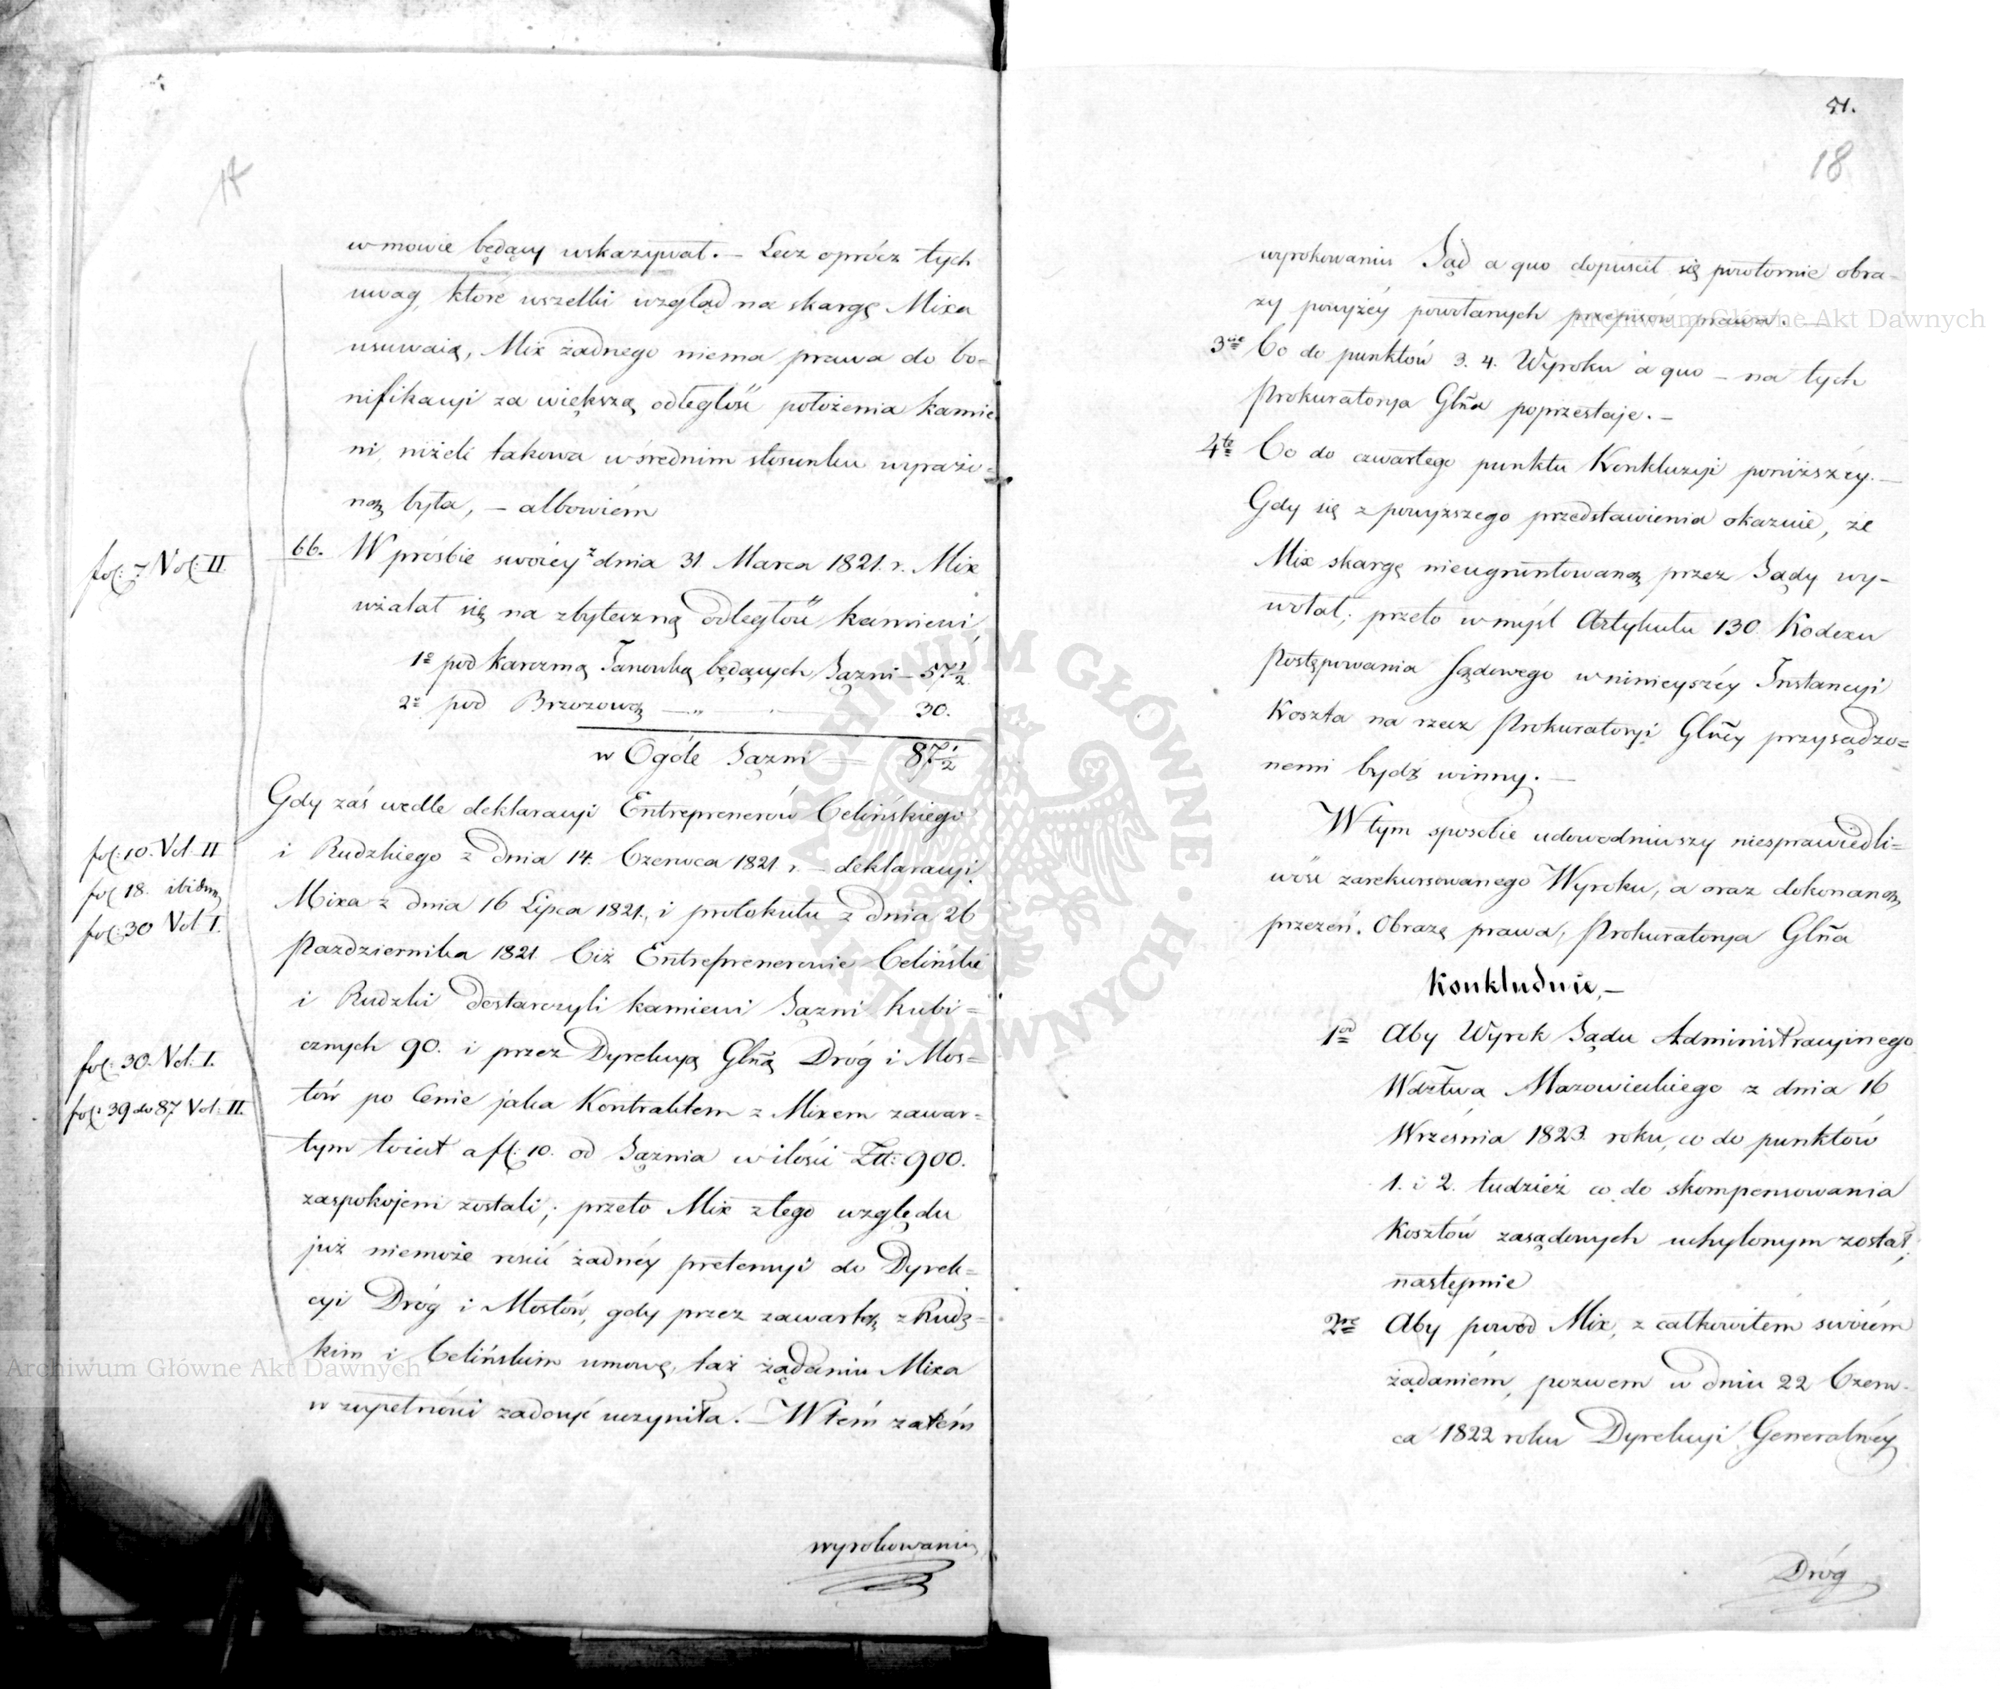 w mowie będący wskazywał. — Lecz oprócz tych
uwag, które wszelki wzgląd na skargę Mixa
usuwaią, Mix żadnego niema prawa do bo=
nifikacyi za większą odległość położenia kamie
ni, niżeli takowa w średnim stosunku wyrażo=
ną była, — albowiém
fol: 7 Vol: II.
66. W prośbie swoiey z dnia 31 Marca 1821. r. Mix
użalał się na zbyteczną odległość kamieni
1º pod karczmą Janówką będących Sążni — 57½
2º pod Brzozową — " — 30.
w Ogóle Sążni = 87½
Gdy zaś wedle deklaracyi Entreprenerów Celińskiego
fol: 10. Vol. II
i Rudzkiego z dnia 14. Czerwca 1821 r. — deklaracyi
fol 18. ibidem
Mixa z dnia 16 Lipca 1821., i protokułu z dnia 26
fol: 30 Vol I.
Października 1821. Ciż Entreprenerowie Celiński
i Rudzki dostarczyli kamieni Sążni kubi=
cznych 90. i przez Dyrekcyą Glną Dróg i Mos=
fol: 30. Vol. I.
tów po Cenie jaka Kontraktem z Mixem zawar=
fol: 39 do 87 Vol: II.
tym toiest a fl: 10. od Sążnia w ilości Złł: 900.
zaspokojeni zostali; przeto Mix z tego względu
już niemoże rościć żadnéy pretensyi do Dyrek=
cyi Dróg i Mostów, gdy przez zawartą z Rudz=
kim i Celińskim umowę, taż żądaniu Mixa
w zupełności zadosyć uczyniła. — W tém zatém
wyrokowaniu
51.
18
wyrokowaniu Sąd a quo dopuścił się powtórnie obra=
zy powyżéy powołanych przepisów prawa. —
3cie Co do punktów 3. 4. Wyroku a quo — na tych
Prokuratorya Glna poprzestaje. —
4te Co do czwartego punktu Konkluzyi poniższéy. —
Gdy się z powyższego przedstawienia okazuie, że
Mix skargę nieugruntowaną przez Sądy wy=
wołał; przeto w myśl Artykułu 130 Kodexu
Postępowania Sądowego w ninieyszéy Instancyi
Koszta na rzecz Prokuratoryi Glnéy przysądzo=
nemi bydź winny. —
W tym sposobie udowodniwszy niesprawiedli=
wość zarekursowanego Wyroku, a oraz dokonaną
przezeń. Obrazę prawa, Prokuratorya Glna
Konkluduie, —
1od Aby Wyrok Sądu Administracyinego
Wdztwa Mazowieckiego z dnia 16
Września 1823. roku, co do punktów
1. i 2. tudzież co do skompensowania
Kosztów zasądzonych uchylonym został,
następnie
2re Aby powód Mix, z całkowitém swoiém
żądaniém, pozwem w dniu 22 Czerw=
ca 1822 roku Dyrekcyi Generalnéy
Dróg
Archiwum Główne Akt Dawnych
Archiwum Główne Akt Dawnych
ARCHIWUM GŁÓWNE AKT DAWNYCH